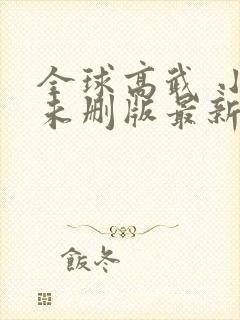 全球高武 小
未删版最新
飯冬